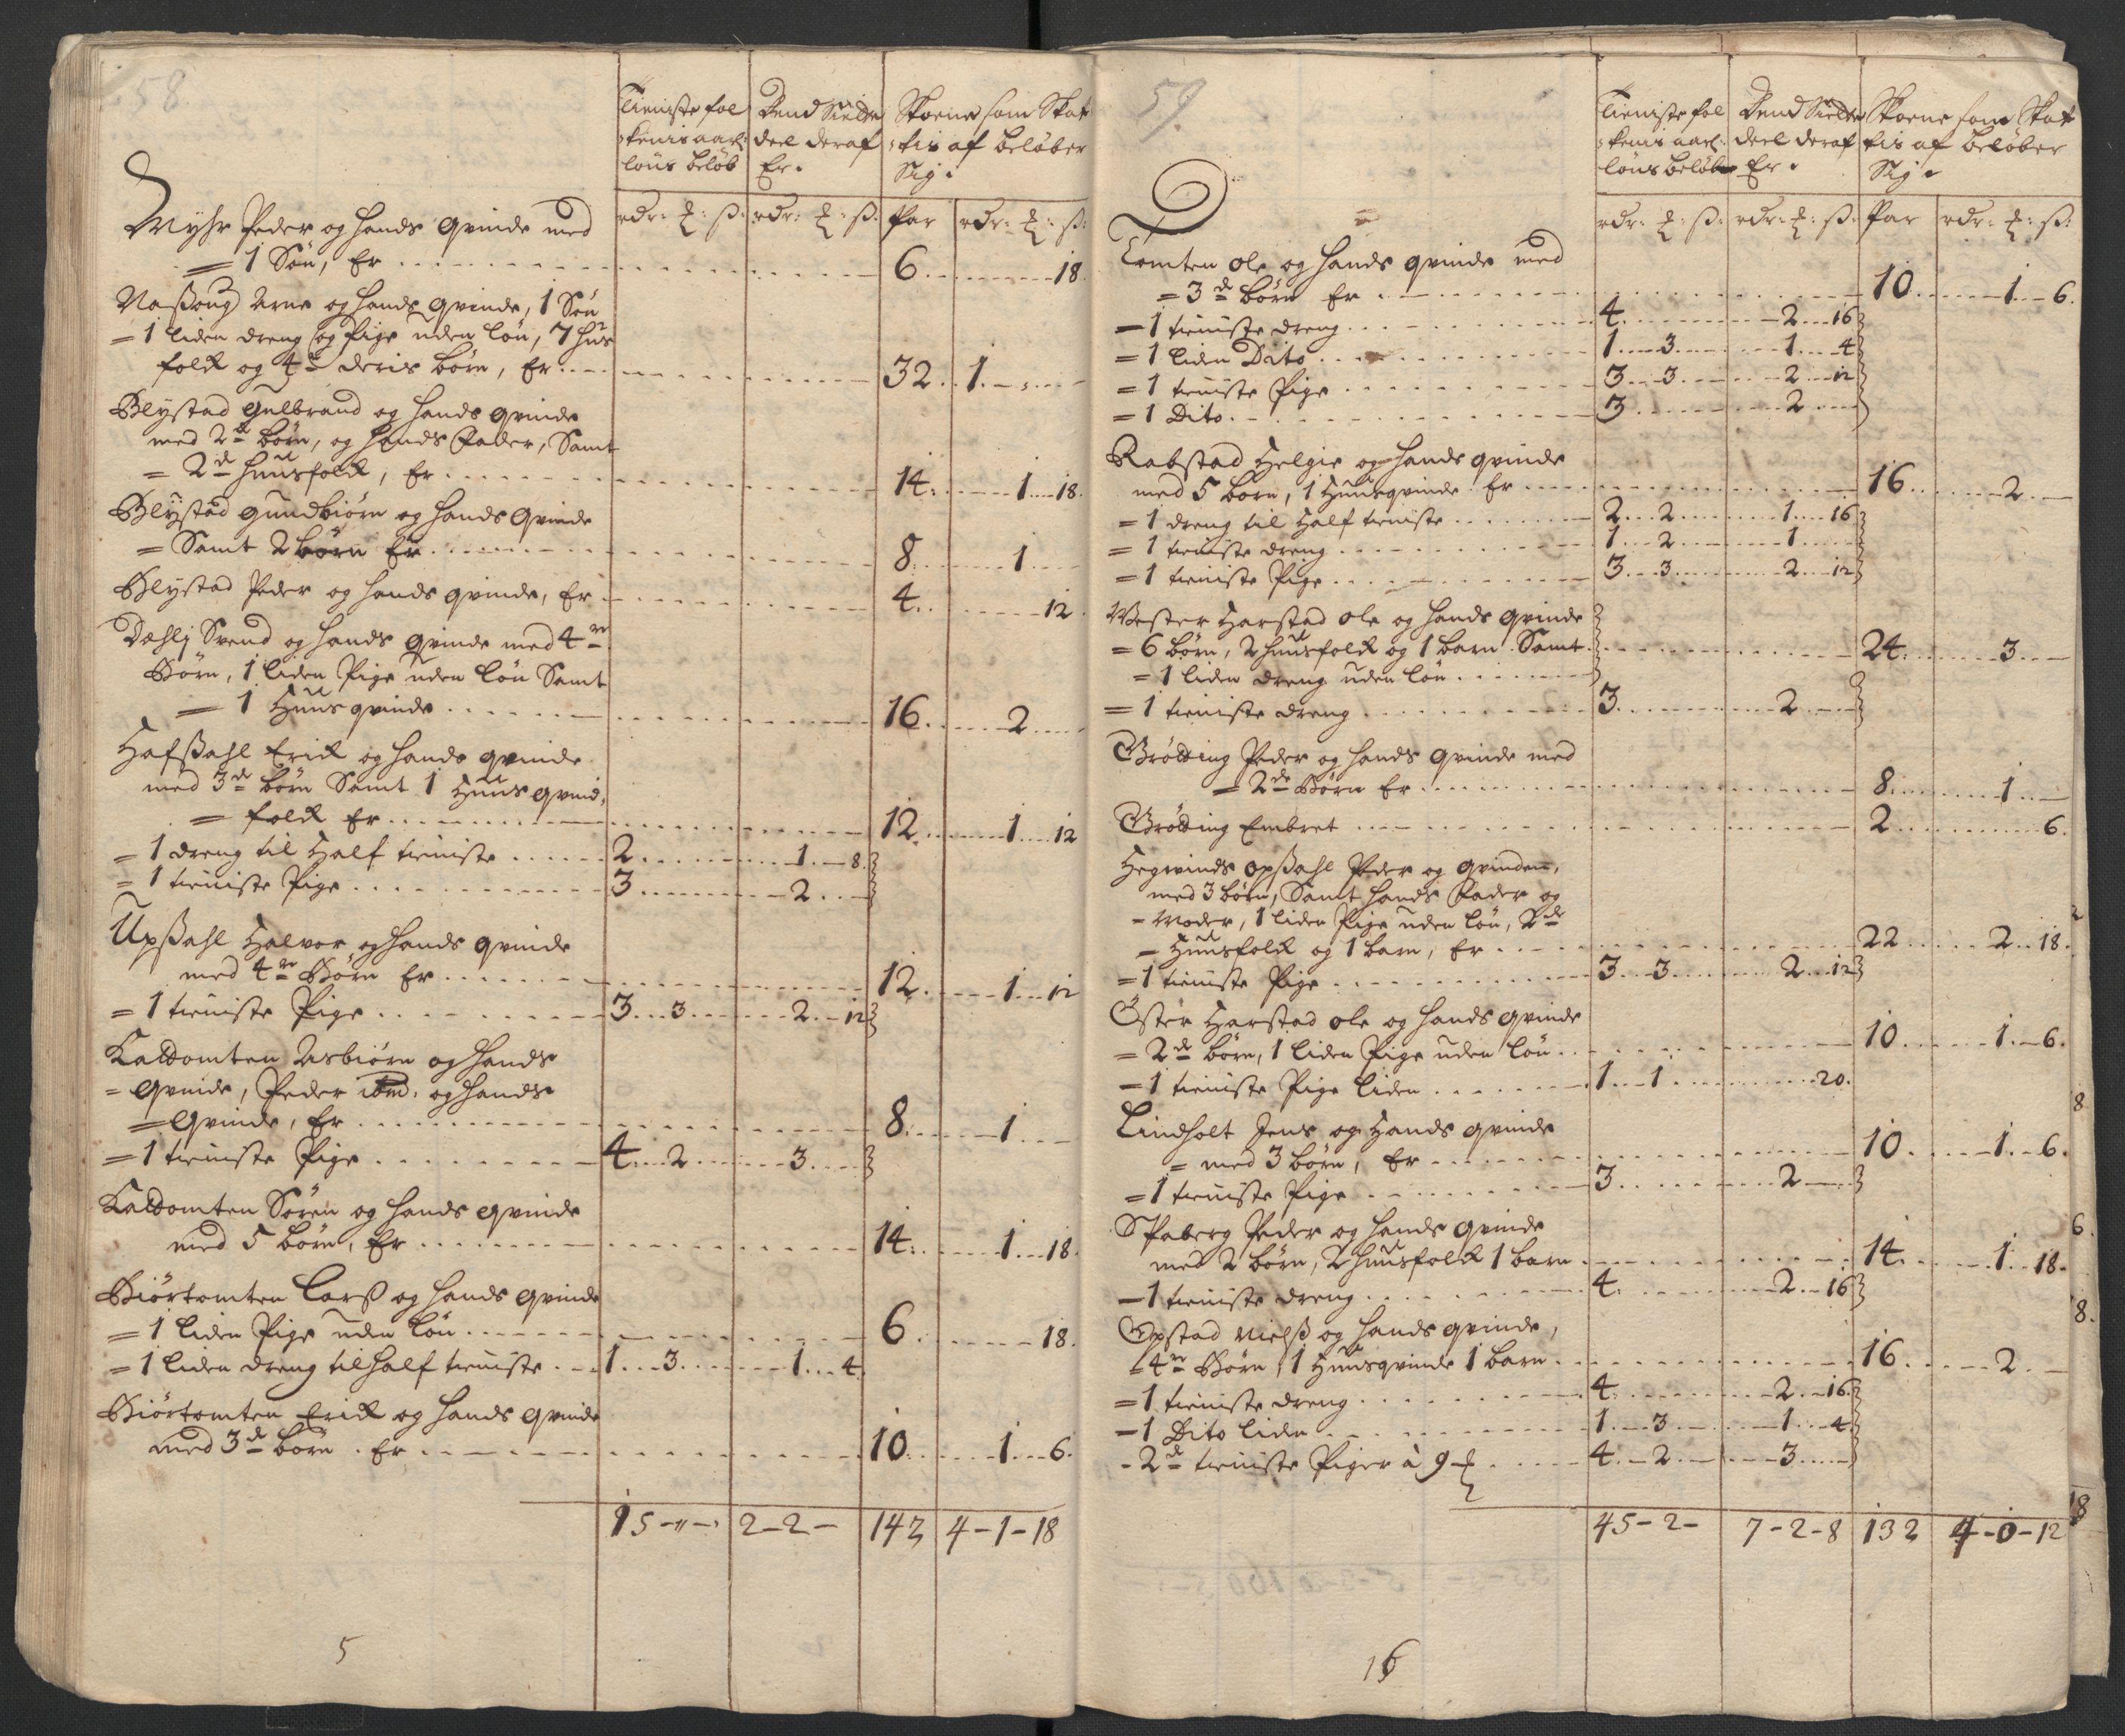 58.
Tieniste fol Dend Siette Skoene som Skat
-kenis aarl: deel deraf -tis af beløber
løns beløb Er. Sig.
rdr: ß: rdr: ß: Par rdr: ß:
Myhr Peder og hands qvinde med
= 1 Søn, Er 6 18.
Naßoug Arne og hands qvinde, 1 Søn
= 1 liden dreng og Pige uden løn, 7 huus
folck og 4re deris børn, Er 32 1
Blystad Gulbrand og hands qvinde
med 2de børn, og hands Fader, Samt
= 2de huusfolck, Er 14 1 18.
Blystad Gundbiørn og hands Qvinde
= Samt 2 børn Er 8 1
Blystad Peder og hands qvinde, Er 4 12.
Dæhlj Svend og hands qvinde med 4re
Børn, 1 liden Pige uden løn Samt
= 1 Huus qvinde 16 2
Hafßahl Erick og hands qvinde
med 3de børn Samt 1 Huus qvind,
= folck Er 12 1 12
= 1 dreng til Half tieniste 2 1 8.
= 1 tieniste Pige 3 2
Upßahl Halvor og hands qvinde
med 4re Børn Er 12 1 12
= 1 tieniste Pige 3 3 2 12
Kaldomten Asbiørn og hands
= Qvinde, Peder ibid. og hands
= Qvinde, Er 8 1
= 1 tieniste Pige 4 2 3
Kaldomten Søren og hands qvinde
med 5 børn, Er 14 1 18.
Biørtomten Larß og hands qvinde
= 1 liden Pige uden løn 6 18.
= 1 liden dreng til half tieniste 1 3 1 4.
Biørtomten Erick og hands qvinde
med 3de børn. Er 10 1 6.
15-"- 2-2- 142 4-1-18
5
59.
Tieniste fol Dend Siette Skoene som Skat
-kenis aarl: deel deraf tis af beløber
løns beløb Er. Sig.
rdr: ß: rdr: ß: Par rdr: ß:
Tomten Ole og hands qvinde med
= 3de børn Er 10 1 6.
= 1 tieniste dreng 4 2 16
= 1 liden Dito 1 3 1 4
= 1 tieniste Pige 3 3 2 12
= 1 Dito 3 2
Rabstad Helgie og hands qvinde
med 5 børn, 1 Huusqvinde Er 16 2
= 1 dreng til Half tieniste 2 2 1 16
= 1 tieniste dreng 1 2 1
= 1 tieniste Pige 3 3 2 12
Vester Harstad Ole og hands qvinde
= 6 børn, 2 huusfolck og 1 barn Samt 24 3
= 1 liden dreng uden løn
= 1 tieniste dreng 3 2
Grøtting Peder og hands qvinde med
= 2de Børn Er 8 1
Grøtting Embret 2 6.
Hegvinds Opßahl Peder og qvinden,
med 3 børn, Samt hands Fader og
= Moder, 1 liden Pige uden løn, 2de
= Huusfolck og 1 barn, Er 22 2 18.
= 1 tieniste Pige 3 3 2 12
Øster Harstad Ole og hands qvinde
= 2de børn, 1 liden Pige uden løn 10 1 6.
= 1 tieniste Pige liden 1 1 20.
Lindholt Jens og Hands qvinde
= med 3 børn, Er 10 1 6.
= 1 tieniste Pige 3 2
Skaberg Peder og hands qvinde
med 2 børn, 2 huusfolck 1 barn 14 1 18.
= 1 tieniste dreng 4 2 16
Opstad Nielß og hands qvinde,
4re Børn, 1 Huusqvinde 1 barn 16 2
= 1 tieniste dreng 4 2 16.
= 1 Dito liden 1 3 1 4.
- 2de tieniste Piger à 9 4 2 3
45-2- 7-2-8 132 4-0-12
16